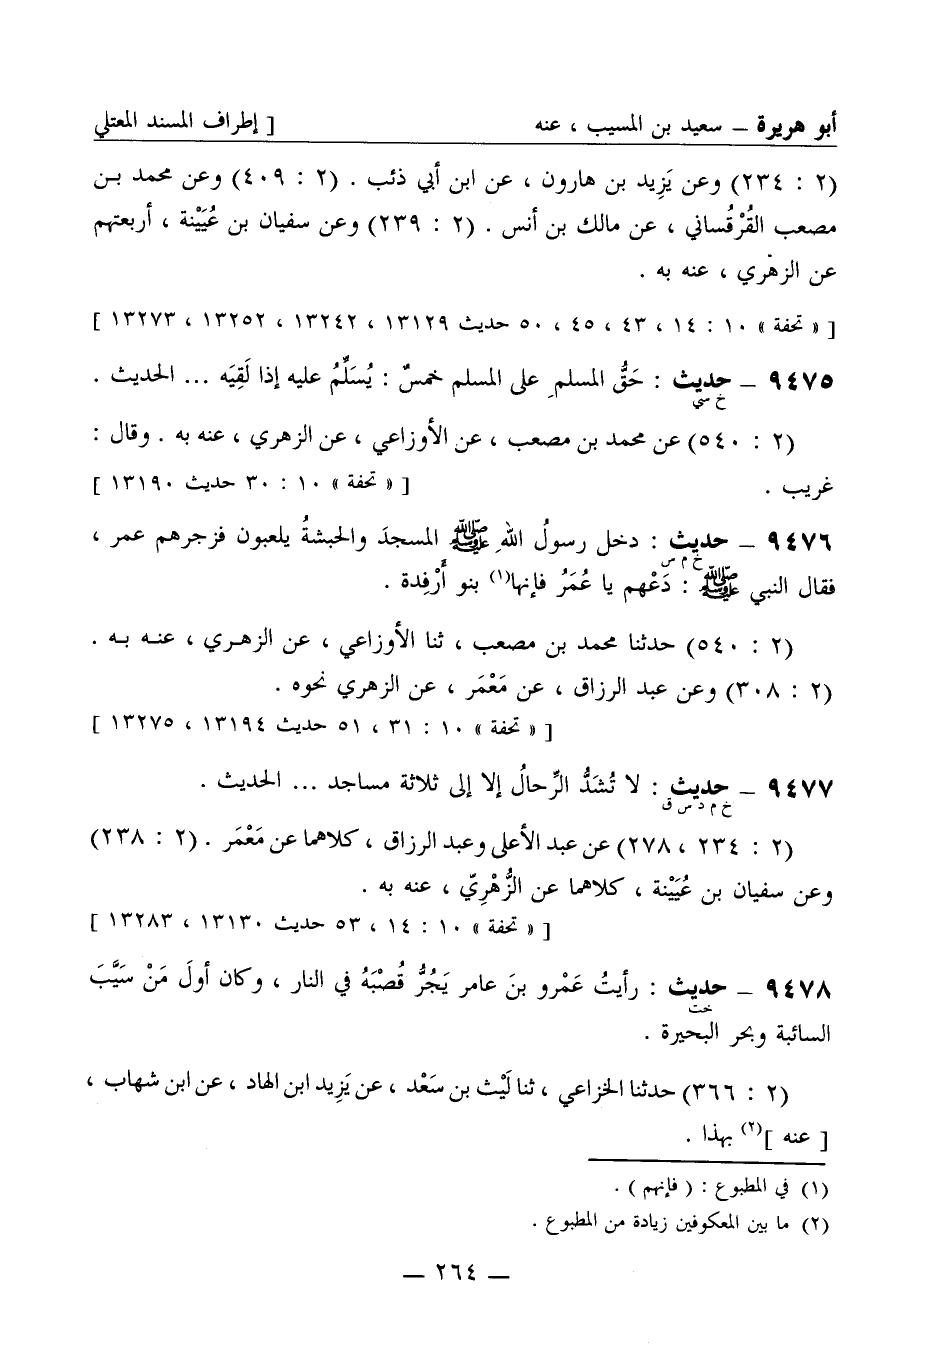 أبو هريرة ــ سعيد بن المسيب ، عنه [ إطراف المسند المعتلي
(٢ : ٢٣٤) وعن يَزِيد بن هارون ، عن ابن أبي ذئب . (٢ : ٤٠٩) وعن محمد بـن
مصعب القُرْقُساني ، عن مالك بن أنس . (٢ : ٢٣٩) وعن سفيان بن عُيَيْنة ، أربعتهم
عن الزهري ، عنه به .
[ « تحفة » ١٠ : ١٤ ، ٤٣ ، ٤٥ ، ٥٠ حديث ١٣١٢٩ ، ١٣٢٤٢ ، ١٣٢٥٢ ، ١٣٢٧٣ ]
٩٤٧٥ ــ حديث : حَقُّ المسلمِ على المسلم خمسٌ : يُسَلِّمُ عليه إذا لَقِيَه ... الحديث .
خ سي
(٢ : ٥٤٠) عن محمد بن مصعب ، عن الأوزاعي ، عن الزهري ، عنه به . وقال :
غريب . [ « تحفة » ١٠ : ٣٠ حديث ١٣١٩٠ ]
٩٤٧٦ ــ حديث : دخل رسولُ اللهِ ﷺ المسجدَ والحبشةُ يلعبون فزجرهم عمر ،
خ م س
فقال النبي ﷺ : دَعْهم يا عُمَرُ فإنها(١) بنو أَرْفِدة .
(٢ : ٥٤٠) حدثنا محمد بن مصعب ، ثنا الأوزاعي ، عن الزهـري ، عنـه بـه .
(٢ : ٣٠٨) وعن عبد الرزاق ، عن مَعْمَر ، عن الزهري نحوه .
[ « تحفة » ١٠ : ٣١ ، ٥١ حديث ١٣١٩٤ ، ١٣٢٧٥ ]
٩٤٧٧ ــ حديث : لا تُشَدُّ الرِّحالُ إلا إلى ثلاثة مساجد ... الحديث .
خ م د س ق
(٢ : ٢٣٤ ، ٢٧٨) عن عبد الأعلى وعبد الرزاق ، كلاهما عن مَعْمَر . (٢ : ٢٣٨)
وعن سفيان بن عُيَيْنة ، كلاهما عن الزُّهْرِيّ ، عنه به .
[ « تحفة » ١٠ : ١٤ ، ٥٣ حديث ١٣١٣٠ ، ١٣٢٨٣ ]
٩٤٧٨ ــ حديث : رأيتُ عَمْرو بنَ عامر يَجُرُّ قُصْبَهُ في النار ، وكان أولَ مَنْ سَيَّبَ
خت
السائبة وبحر البحيرة .
(٢ : ٣٦٦) حدثنا الخزاعي ، ثنا لَيْث بن سَعْد ، عن يَزِيد ابن الهاد ، عن ابن شهاب ،
[ عنه ](٢) بهذا .
(١) في المطبوع : ( فإنهم ) .
(٢) ما بين المعكوفين زيادة من المطبوع .
ــ ٢٦٤ ــ